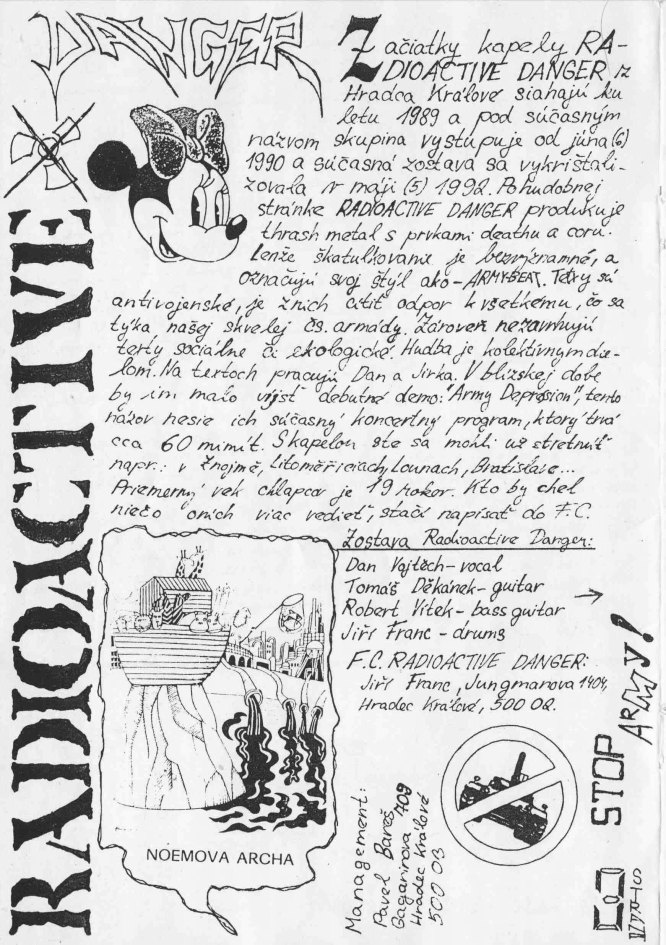 DANGER
RADIOACTIVE
Začiatky kapely RA-
DIOACTIVE DANGER z
Hradca Králové siahajú ku
letu 1989 a pod súčasným
názvom skupina vystupuje od júna (6)
1990 a súčasná zostava sa vykrištali-
zovala v maji (5) 1992. Po hudobnej
stránke RADIOACTIVE DANGER produkuje
thrash metal s prvkami deathu a coru.
Lenže škatuľkovanie je bezvýznamné, a
označujú svoj štýl ako - ARMY-BEAT. Texty sú
antivojenské, je z nich cítiť odpor k všetkému, čo sa
týka našej skvelej čs. armády. Zároveň nezavrhujú
texty sociálne či ekologické. Hudba je kolektívnym die-
lom. Na textoch pracujú Dan a Jirka. V blízskej dobe
by im malo výjsť debutné demo: "Army Depresion", tento
názov nesie ich súčasný koncertný program, ktorý trvá
cca 60 minút. S kapelou ste sa mohli už stretnúť
napr.: v Znojmě, Litoměřiciach, Lounach, Bratislave...
Priemerný vek chlapcov je 19 rokov. Kto by chel
niečo o nich viac vedieť, stačí napísať do F.C.
Zostava Radioactive Danger:
Dan Vojtěch - vocal
Tomáš Děkánek - guitar
Robert Vítek - bass guitar
Jiří Franc - drums
F.C. RADIOACTIVE DANGER:
Jiří Franc, Jungmanova 1404,
Hradec Králové, 500 02.
NOEMOVA ARCHA
Management:
Pavel Bareš
Gagarinova 709
Hradec Králové
500 03
STOP
ARMY!